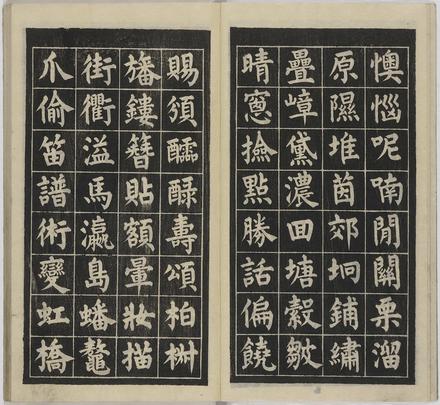 懊惱呢喃閒關栗溜
原隰堆茵郊坰鋪繡
疊嶂黛濃回塘縠皺
晴窓撿點勝話偏饒
賜須醽醁壽頌柏椒
旛鏤簪貼額暈妝描
街衢溢馬瀛島蟠鼇
爪偷笛譜術變虹橋